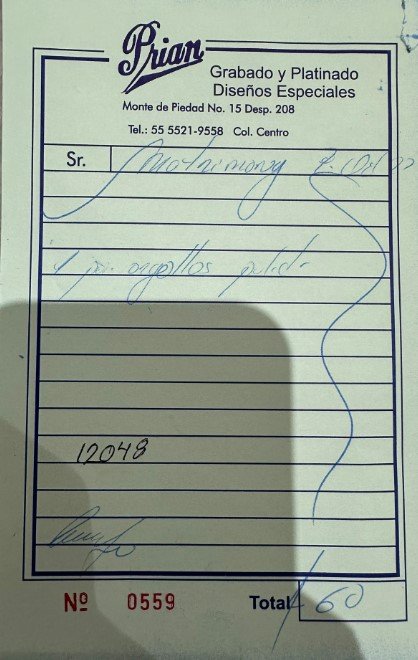 Prian
Grabado y Platinado
Diseños Especiales
Monte de Piedad No. 15 Desp. 208
Tel.: 55 5521-9558 Col. Centro
Sr. Matrimony
1 par argollas
12048
Nº 0559
Total $ 60